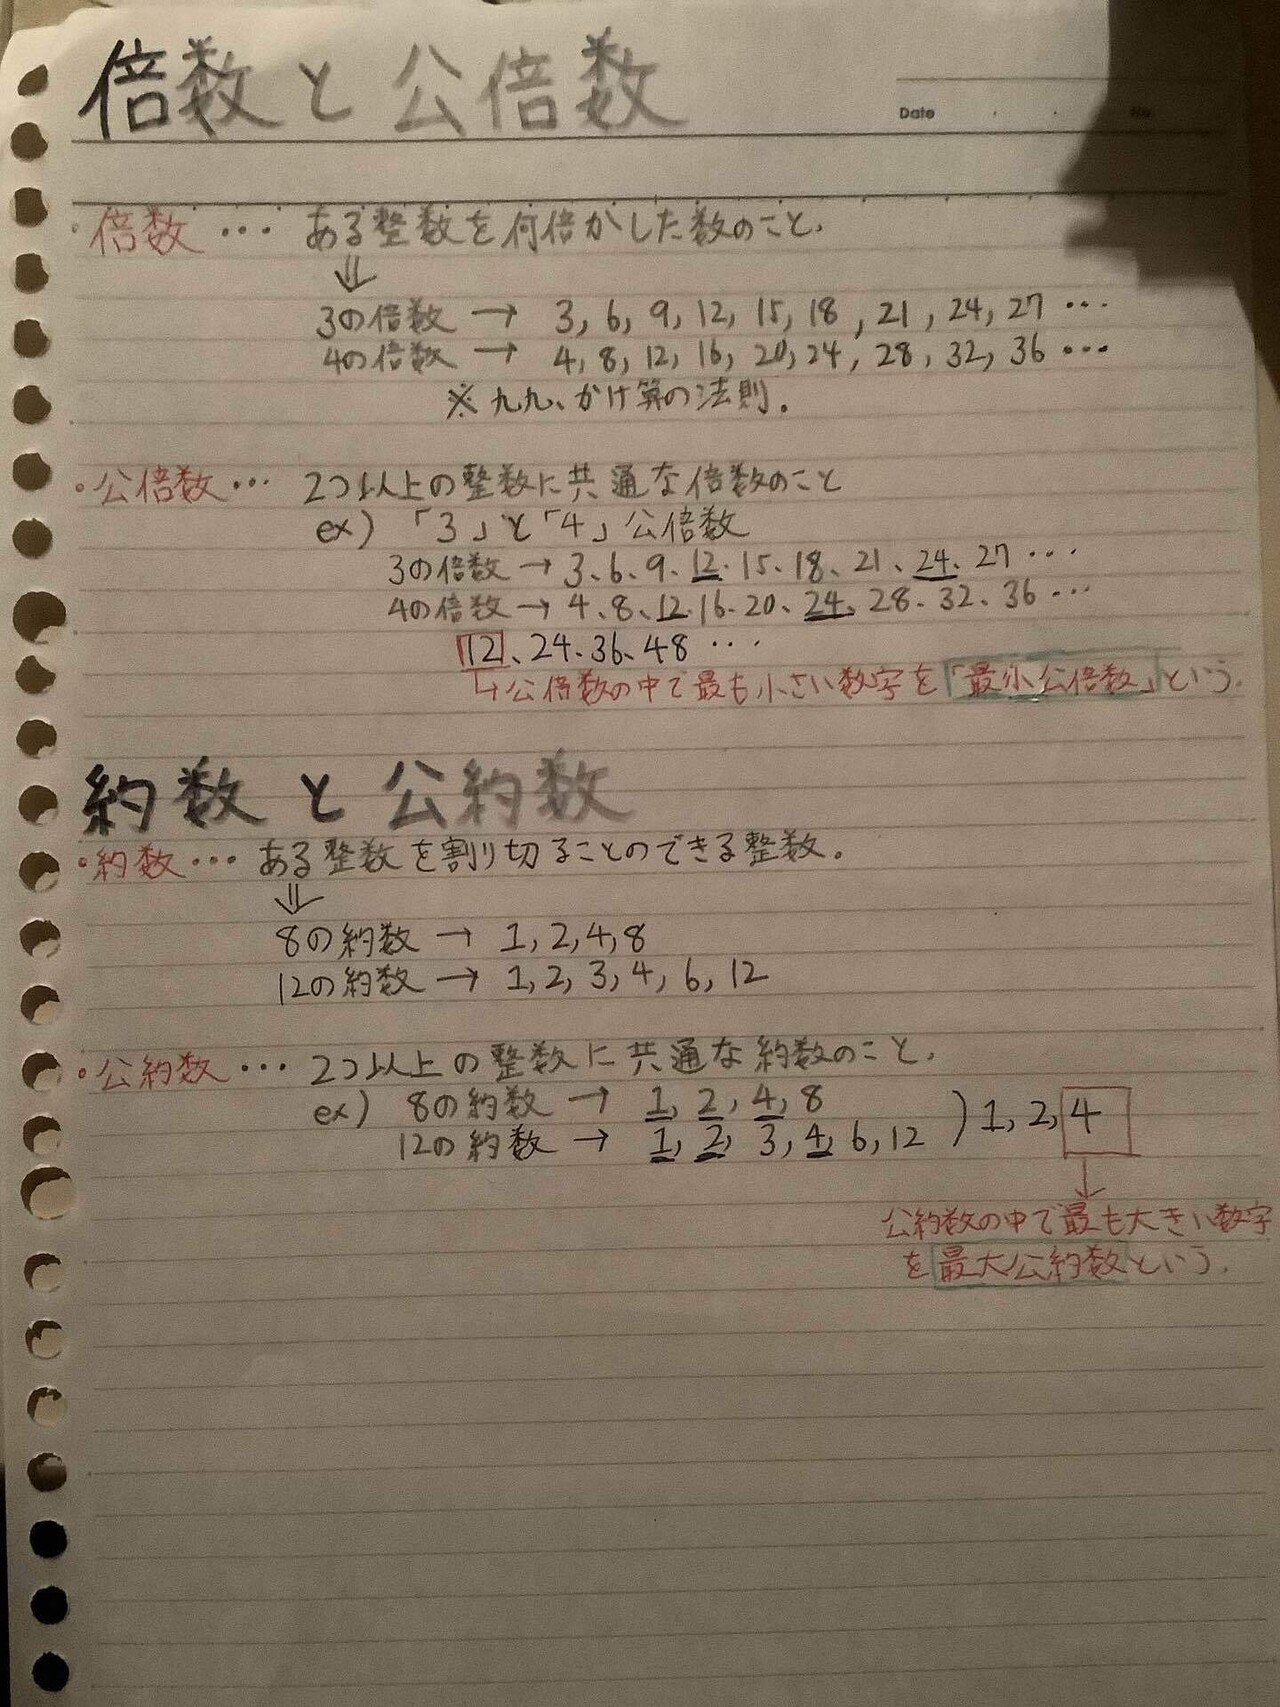 倍数と公倍数
Date . . No.
・倍数 ・・・ ある整数を何倍かした数のこと.
⇓
3の倍数 → 3, 6, 9, 12, 15, 18 , 21 , 24, 27 ・・・
4の倍数 → 4, 8, 12, 16, 20, 24, 28, 32, 36 ・・・
※ 九九、かけ算の法則.
・公倍数・・・ 2つ以上の整数に共通な倍数のこと
ex) 「3」と「4」公倍数
3の倍数 → 3、6、9、12、15、18、21、24、27 ・・・
4の倍数 → 4、8、12、16、20、24、28、32、36 ・・・
12、24、36、48 ・・・
↳公倍数の中で最も小さい数字を「最小公倍数」という.
約数と公約数
・約数・・・ ある整数を割り切ることのできる整数.
⇓
8の約数 → 1, 2, 4, 8
12の約数 → 1, 2, 3, 4, 6, 12
・公約数・・・ 2つ以上の整数に共通な約数のこと.
ex) 8の約数 → 1, 2, 4, 8
12の約数 → 1, 2, 3, 4, 6, 12 ) 1, 2, 4
↓
公約数の中で最も大きい数字
を最大公約数という.